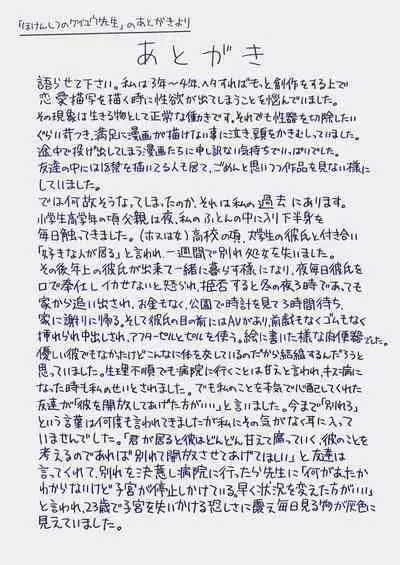 「ほけんしつのケイユウ先生」のあとがきより
あとがき
語らせて下さい。私は3年〜4年、ヘタすればもっと創作をする上で
恋愛描写を描く時に性欲が出てしまうことを悩んでいました。
その現象は生き物として正常な働きです。それでも性器を切除したい
ぐらい苛つき、満足に漫画が描けない事に泣き、頭をかきむしっていました。
途中で投げ出してしまう漫画たちに申し訳ない気持ちでいっぱいでした。
友達の中には18禁を描いてる人も居て、ごめんと思いつつ作品を見ない様に
していました。
では何故そうなってしまったのか、それは私の過去にあります。
小学生高学年の頃父親は夜、私のふとんの中に入り下半身を
毎日触ってきました。(ホスは女)高校の頃、大学生の彼氏と付き合い
「好きな人が居る」と言われ、一週間で別れ処女を失いました。
その後年上の彼氏が出来て一緒に暮らす様になり、夜毎日彼氏を
口で奉仕しイカせないと怒られ、拒否すると冬の夜3時であっても
家から追い出され、お金もなく、公園で時計を見て3時間待ち、
家に謝りに帰る。そして彼氏の目の前にはAVがあり、前戯もなくゴムもなく
挿れられ中出しされ、アフターピルとピルを使う。絵に書いた様な肉便器でした。
優しい彼でもなかったけどこんなに体を交しているのだから結婚するんだろうと
思っていました。生理不順でも病院に行くことは甘えと言われ、キス病に
なった時も私のせいとされました。でも私のことを本気で心配してくれた
友達が「彼を開放してあげた方がいい」と言いました。今まで「別れろ」
という言葉は何度も言われてきましたが私にその気がなく耳に入って
いませんでした。「君が居ると彼はどんどん甘えて腐っていく、彼のことを
考えるのであれば別れて開放させてあげてほしい」と友達は
言ってくれて、別れを決意し病院に行ったら先生に「何があったか
わからないけど子宮が停止しかけている。早く状況を変えた方がいい」
と言われ、23歳で子宮を失いかける恐しさに震え毎日見る物が灰色に
見えていました。